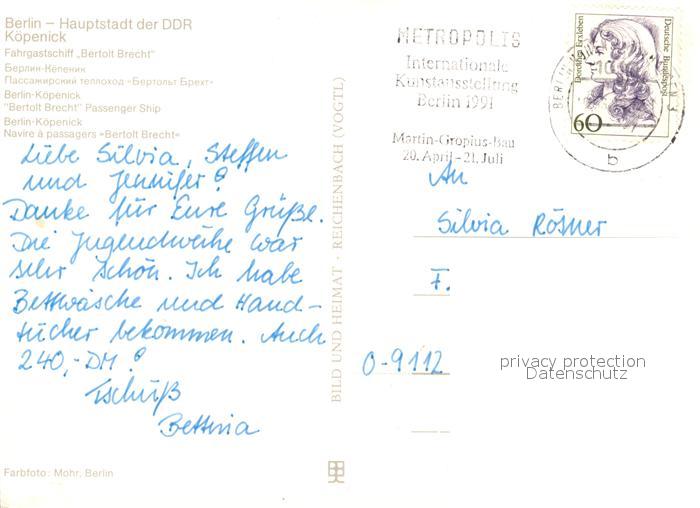 Berlin – Hauptstadt der DDR
Köpenick
Fahrgastschiff „Bertolt Brecht"
Берлин-Кёпеник
Пассажирский теплоход «Бертольт Брехт»
Berlin-Köpenick
"Bertolt Brecht" Passenger Ship
Berlin-Köpenick
Navire à passagers «Bertolt Brecht»
Liebe Silvia, Steffen
und Jennifer!
Danke für Eure Grüße.
Die Jugendweihe war
sehr schön. Ich habe
Bettwäsche und Hand-
tücher bekommen. Auch
240,-DM!
Tschüß
Bettina
Farbfoto: Mohr, Berlin
BILD UND HEIMAT · REICHENBACH (VOGTL)
METROPOLIS
Internationale
Kunstausstellung
Berlin 1991
Martin-Gropius-Bau
20. April - 21. Juli
Dorothea Erxleben
Deutsche Bundespost
60
BERLIN
b
An
Silvia Rösner
F.
O-9112
privacy protection
Datenschutz